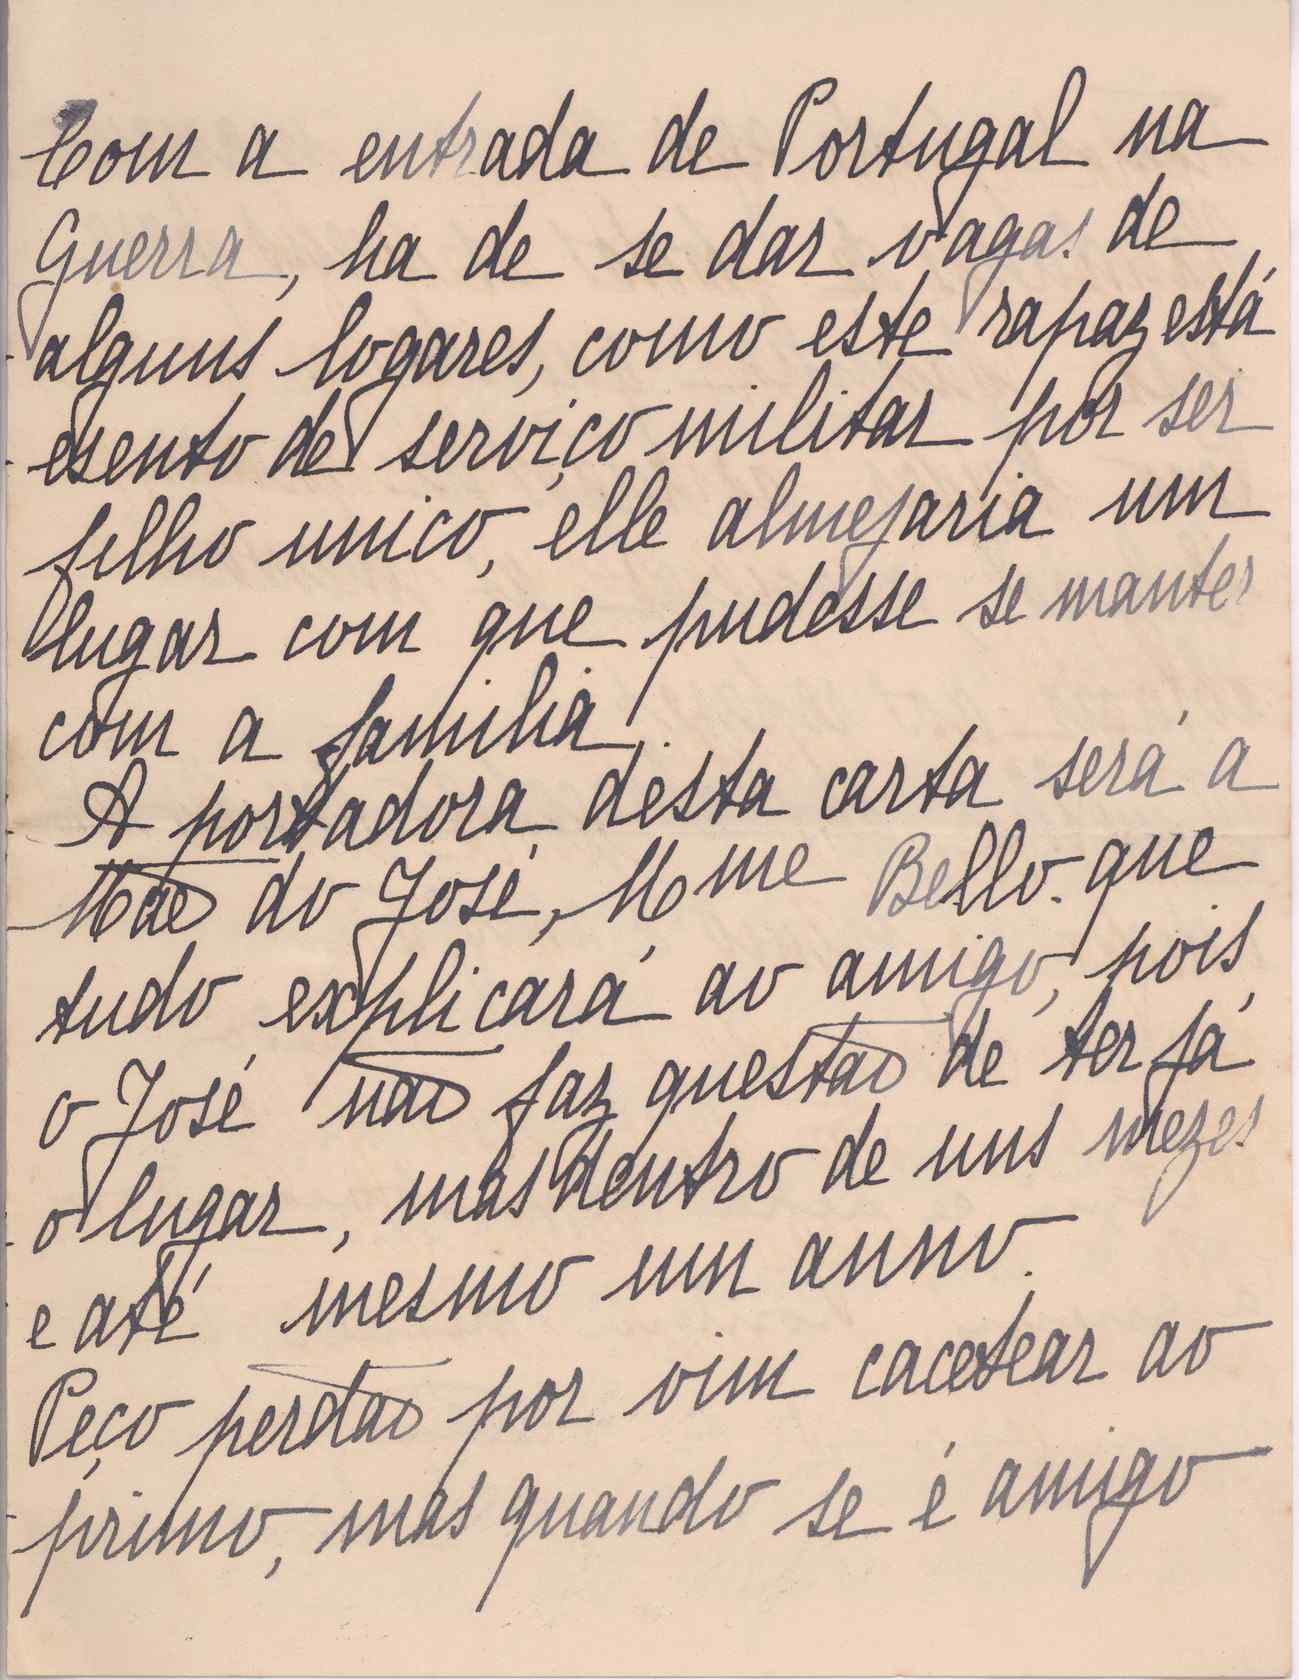 Com a entrada de Portugal na
Guerra, ha de se dar vagas de
alguns logares, como este rapaz está
esento de serviço militar por ser
filho unico, elle almejaria um
lugar com que pudesse se manter
com a familia.
A portadora desta carta será a
Mãe do José, Mme Bello. que
tudo explicará ao amigo, pois,
o José não faz questão de ter já
o lugar, mas dentro de uns mezes
e até mesmo um anno.
Peço perdão por vim cacetear ao
primo, mas quando se é amigo